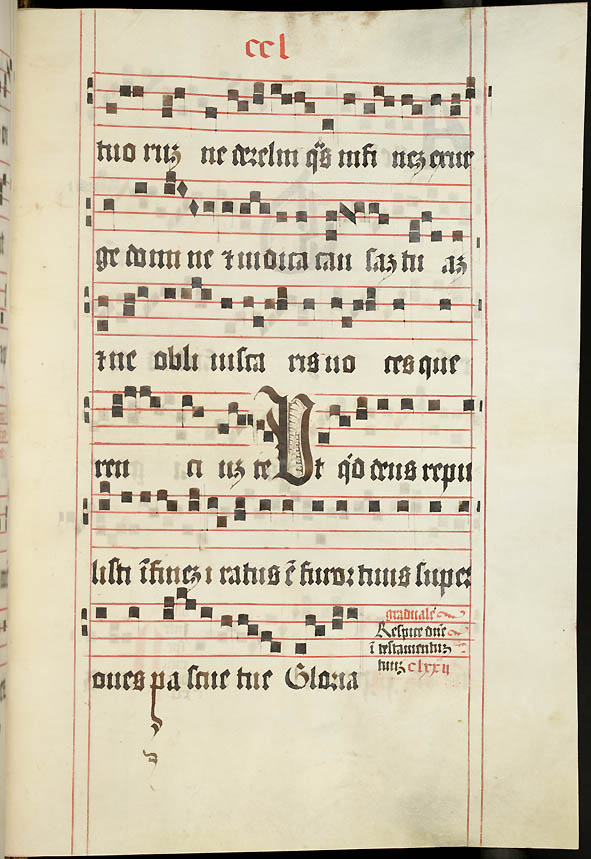 ccl
tuo ruꝫ ne derelin q̄s in fi neꝫ exur
ge domi ne ⁊ iudica cau saꝫ tu aꝫ
⁊ ne obli uisca ris uo ces que
ren ci uꝫ te Vt q̇d deus repu
listi ī fineꝫ i ratus ē furor tuus super
oues pa scue tue Gloria
graduale
Respice dn̄e
ī testamentuꝫ
tuuꝫ clxxii